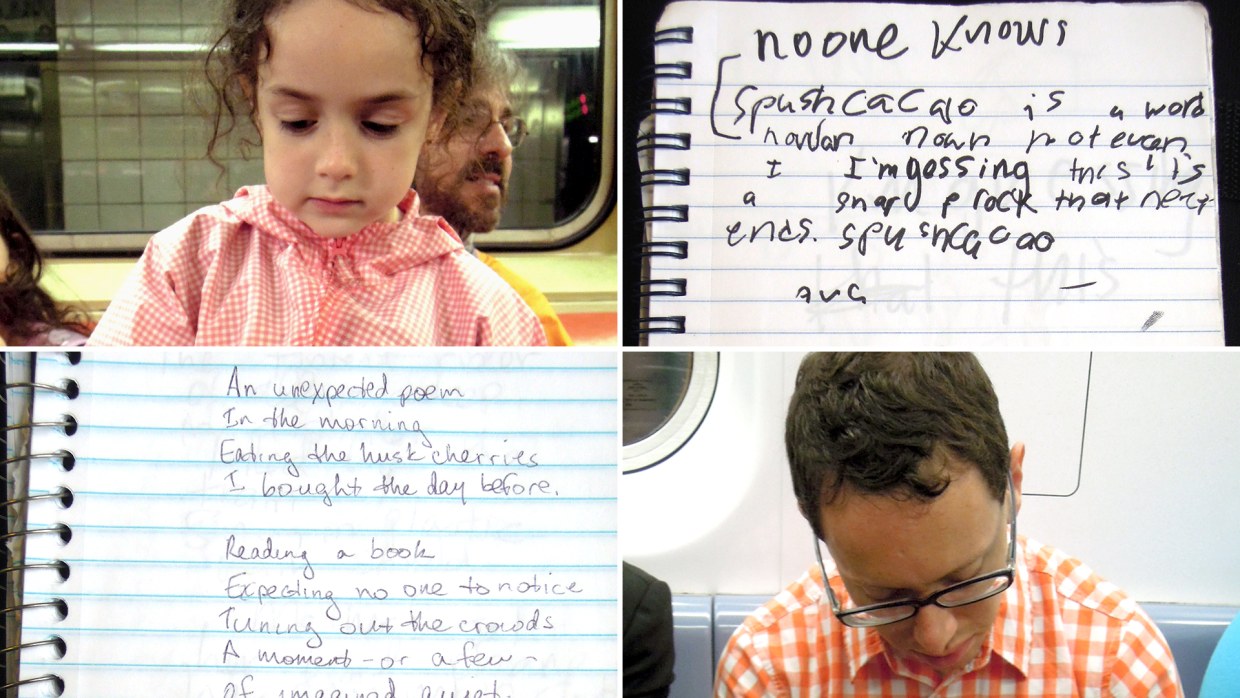 no one knows
spushcacao is a word
nowan nown not evan
I I'm gessing this is
a snard rock that never
ends. spushcacao
ava
An unexpected poem
In the morning
Eating the husk cherries
I bought the day before.
Reading a book
Expecting no one to notice
Tuning out the crowds
A moment - or a few -
of imagined quiet.